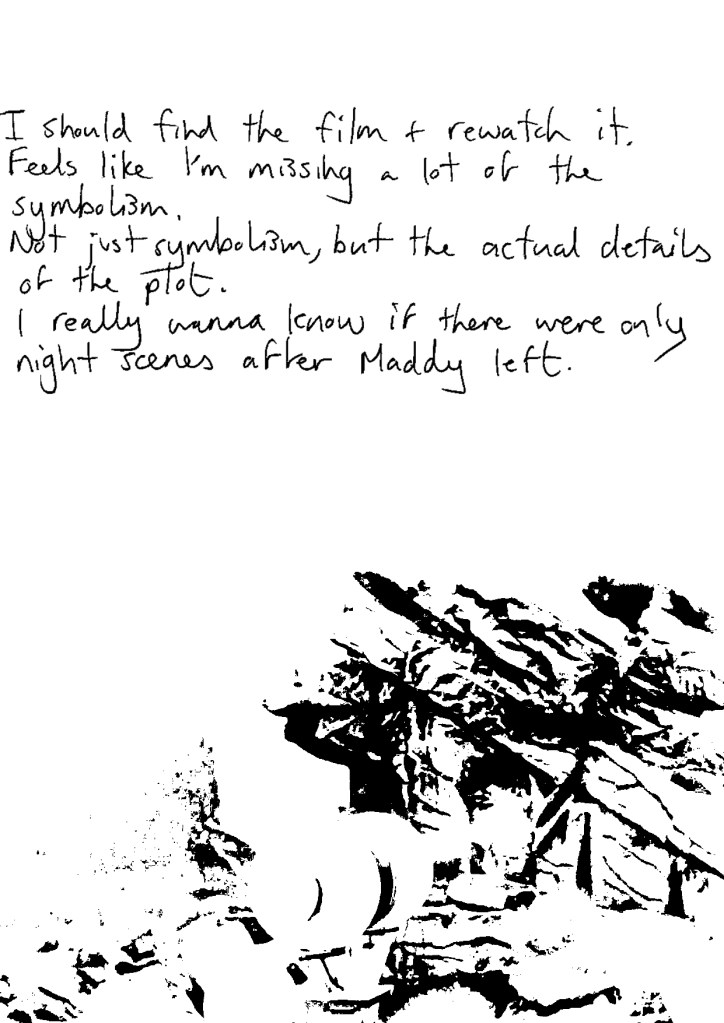 I should find the film + rewatch it.
Feels like I'm missing a lot of the
symbolism.
Not just symbolism, but the actual details
of the plot.
I really wanna know if there were only
night scenes after Maddy left.